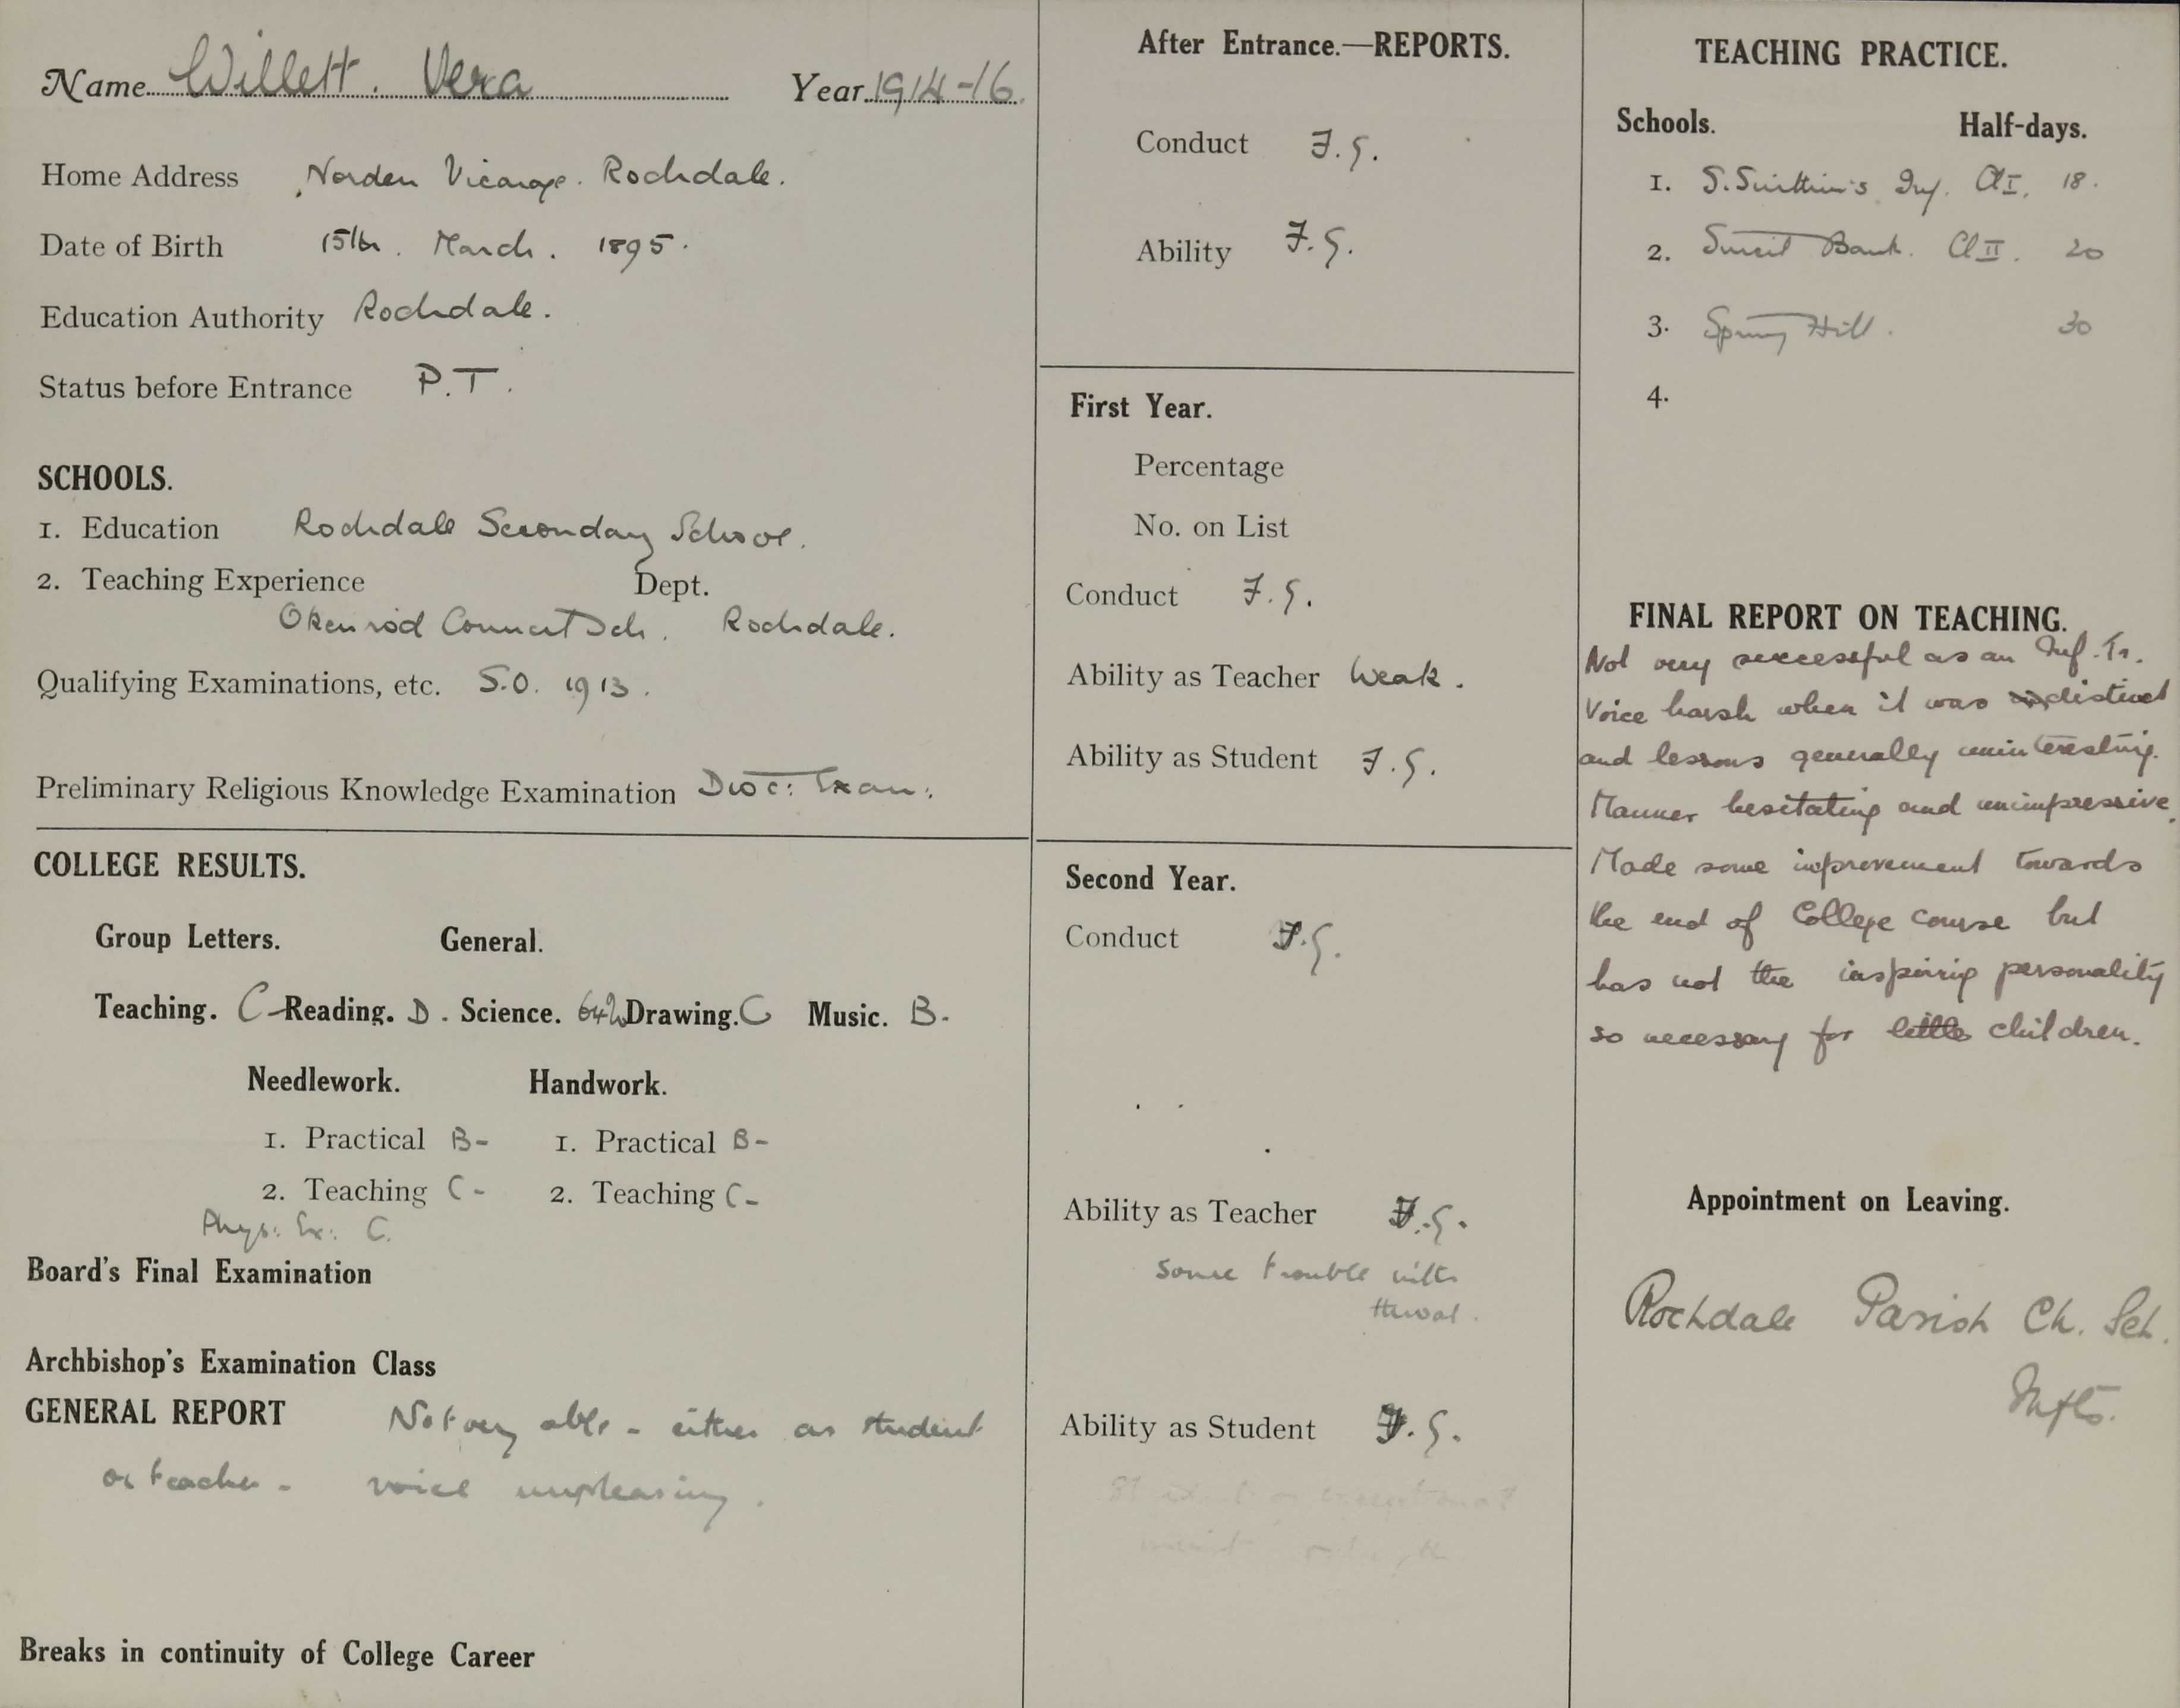 Name Willett. Vera Year 1914-16.
Home Address Norden Vicarage. Rochdale.
Date of Birth 15th. March. 1895.
Education Authority Rochdale.
Status before Entrance P.T.
SCHOOLS.
1. Education Rochdale Secondary School.
2. Teaching Experience Dept.
Okenrod Council Sch. Rochdale.
Qualifying Examinations, etc. S.O. 1913.
Preliminary Religious Knowledge Examination Dioc: Exam:
COLLEGE RESULTS.
Group Letters. General.
Teaching. C- Reading. D. Science. 64% Drawing. C Music. B-
Needlework. Handwork.
1. Practical B- 1. Practical B-
2. Teaching C- 2. Teaching C-
Phys: Ex: C.
Board's Final Examination
Archbishop's Examination Class
GENERAL REPORT Not very able - either as student
or teacher - voice unpleasing.
Breaks in continuity of College Career
After Entrance.—REPORTS.
Conduct F.G.
Ability F.G.
First Year.
Percentage
No. on List
Conduct F.G.
Ability as Teacher Weak.
Ability as Student F.G.
Second Year.
Conduct F.G.
Ability as Teacher F.G.
some trouble with
throat.
Ability as Student F.G.
TEACHING PRACTICE.
Schools. Half-days.
1. S. Swithin's Inf. Cl I. 18.
2. Bank. Cl II. 20
3. Spring Hill. 30
4.
FINAL REPORT ON TEACHING.
Not very successful as an Inf. Tr.
Voice harsh when it was distinct
and lessons generally uninteresting.
Manner hesitating and unimpressive.
Made some improvement towards
the end of College course but
has not the inspiring personality
so necessary for little children.
Appointment on Leaving.
Rochdale Parish Ch. Sch.
Infts.